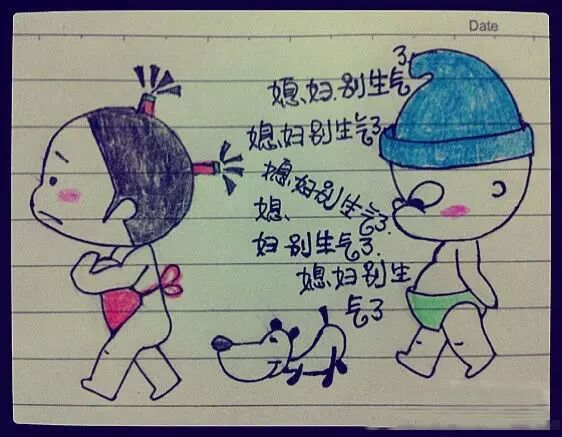 Date
媳妇别生气了
媳妇别生气了
媳妇别生气了
媳、
妇别生气了.
媳妇别生
气了